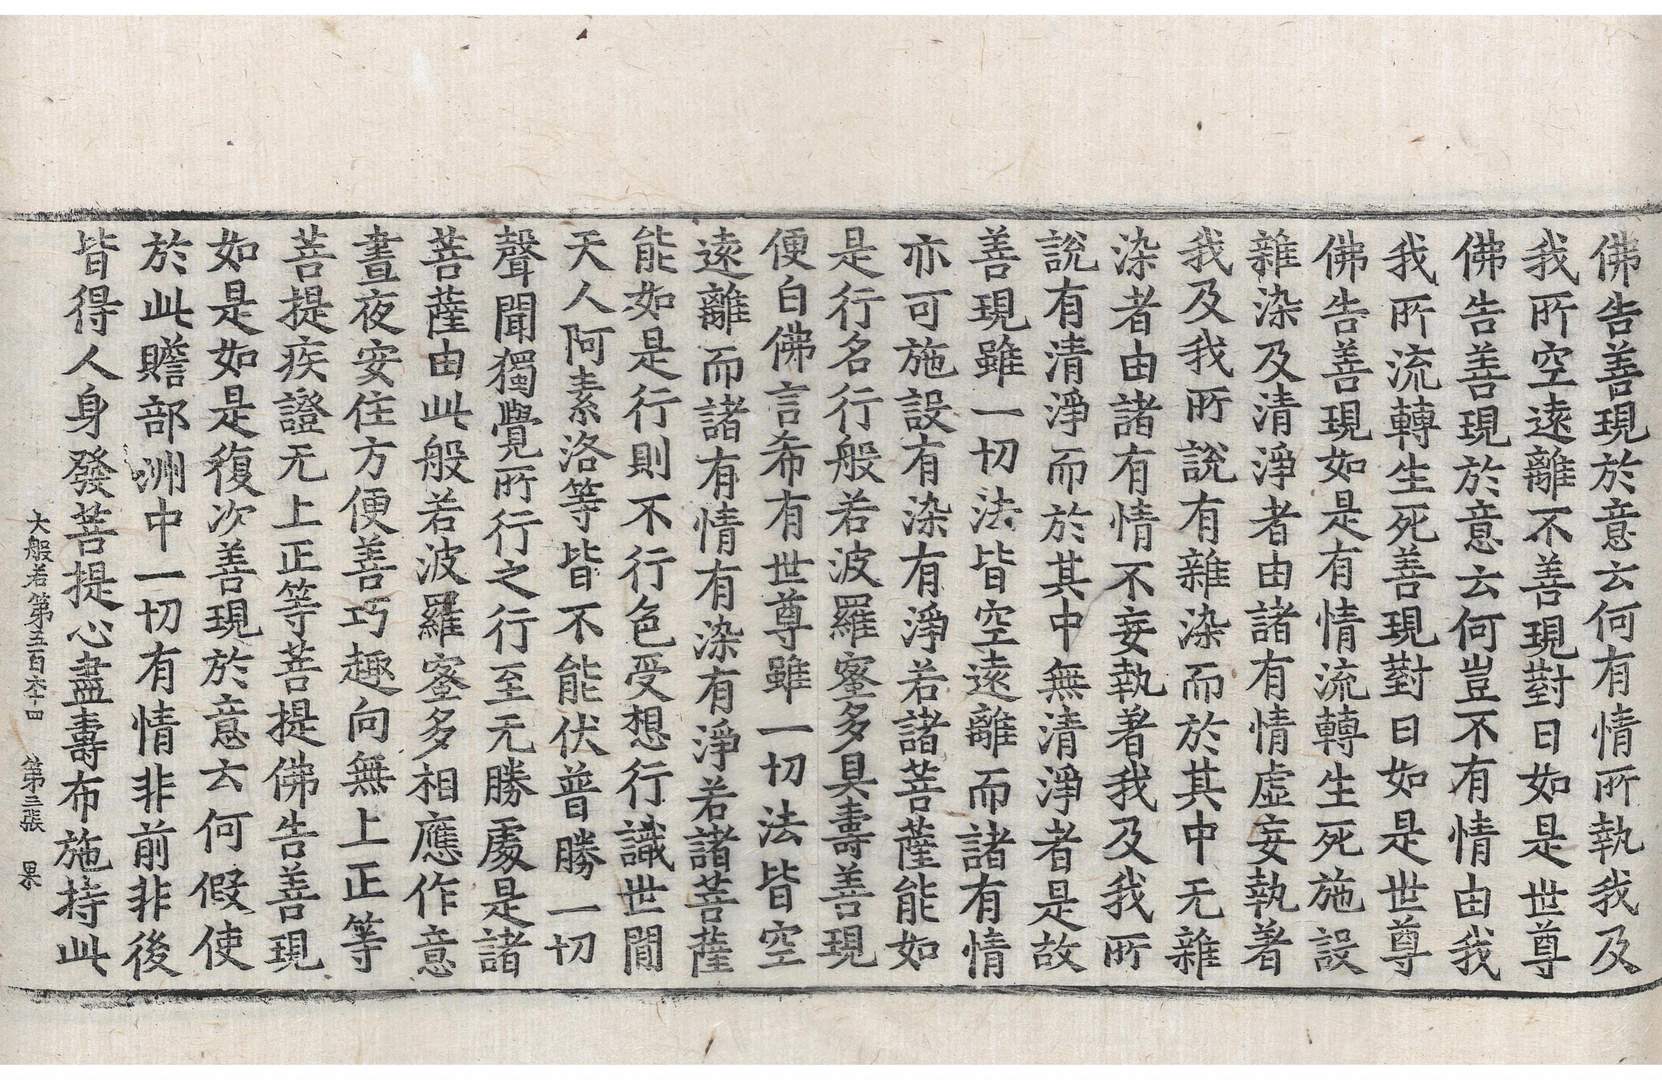 佛告善現於意云何有情所執我及
我所空遠離不善現對曰如是世尊
佛告善現於意云何豈不有情由我
我所流轉生死善現對曰如是世尊
佛告善現如是有情流轉生死施設
雜染及清淨者由諸有情虛妄執著
我及我所說有雜染而於其中无雜
染者由諸有情不妄執著我及我所
說有清淨而於其中無清淨者是故
善現雖一切法皆空遠離而諸有情
亦可施設有染有淨若諸菩薩能如
是行名行般若波羅蜜多具壽善現
便白佛言希有世尊雖一切法皆空
遠離而諸有情有染有淨若諸菩薩
能如是行則不行色受想行識世間
天人阿素洛等皆不能伏普勝一切
聲聞獨覺所行之行至无勝處是諸
菩薩由此般若波羅蜜多相應作意
晝夜安住方便善巧趣向無上正等
菩提疾證无上正等菩提佛告善現
如是如是復次善現於意云何假使
於此贍部洲中一切有情非前非後
皆得人身發菩提心盡壽布施持此
大般若第五百六十四 第三張 果